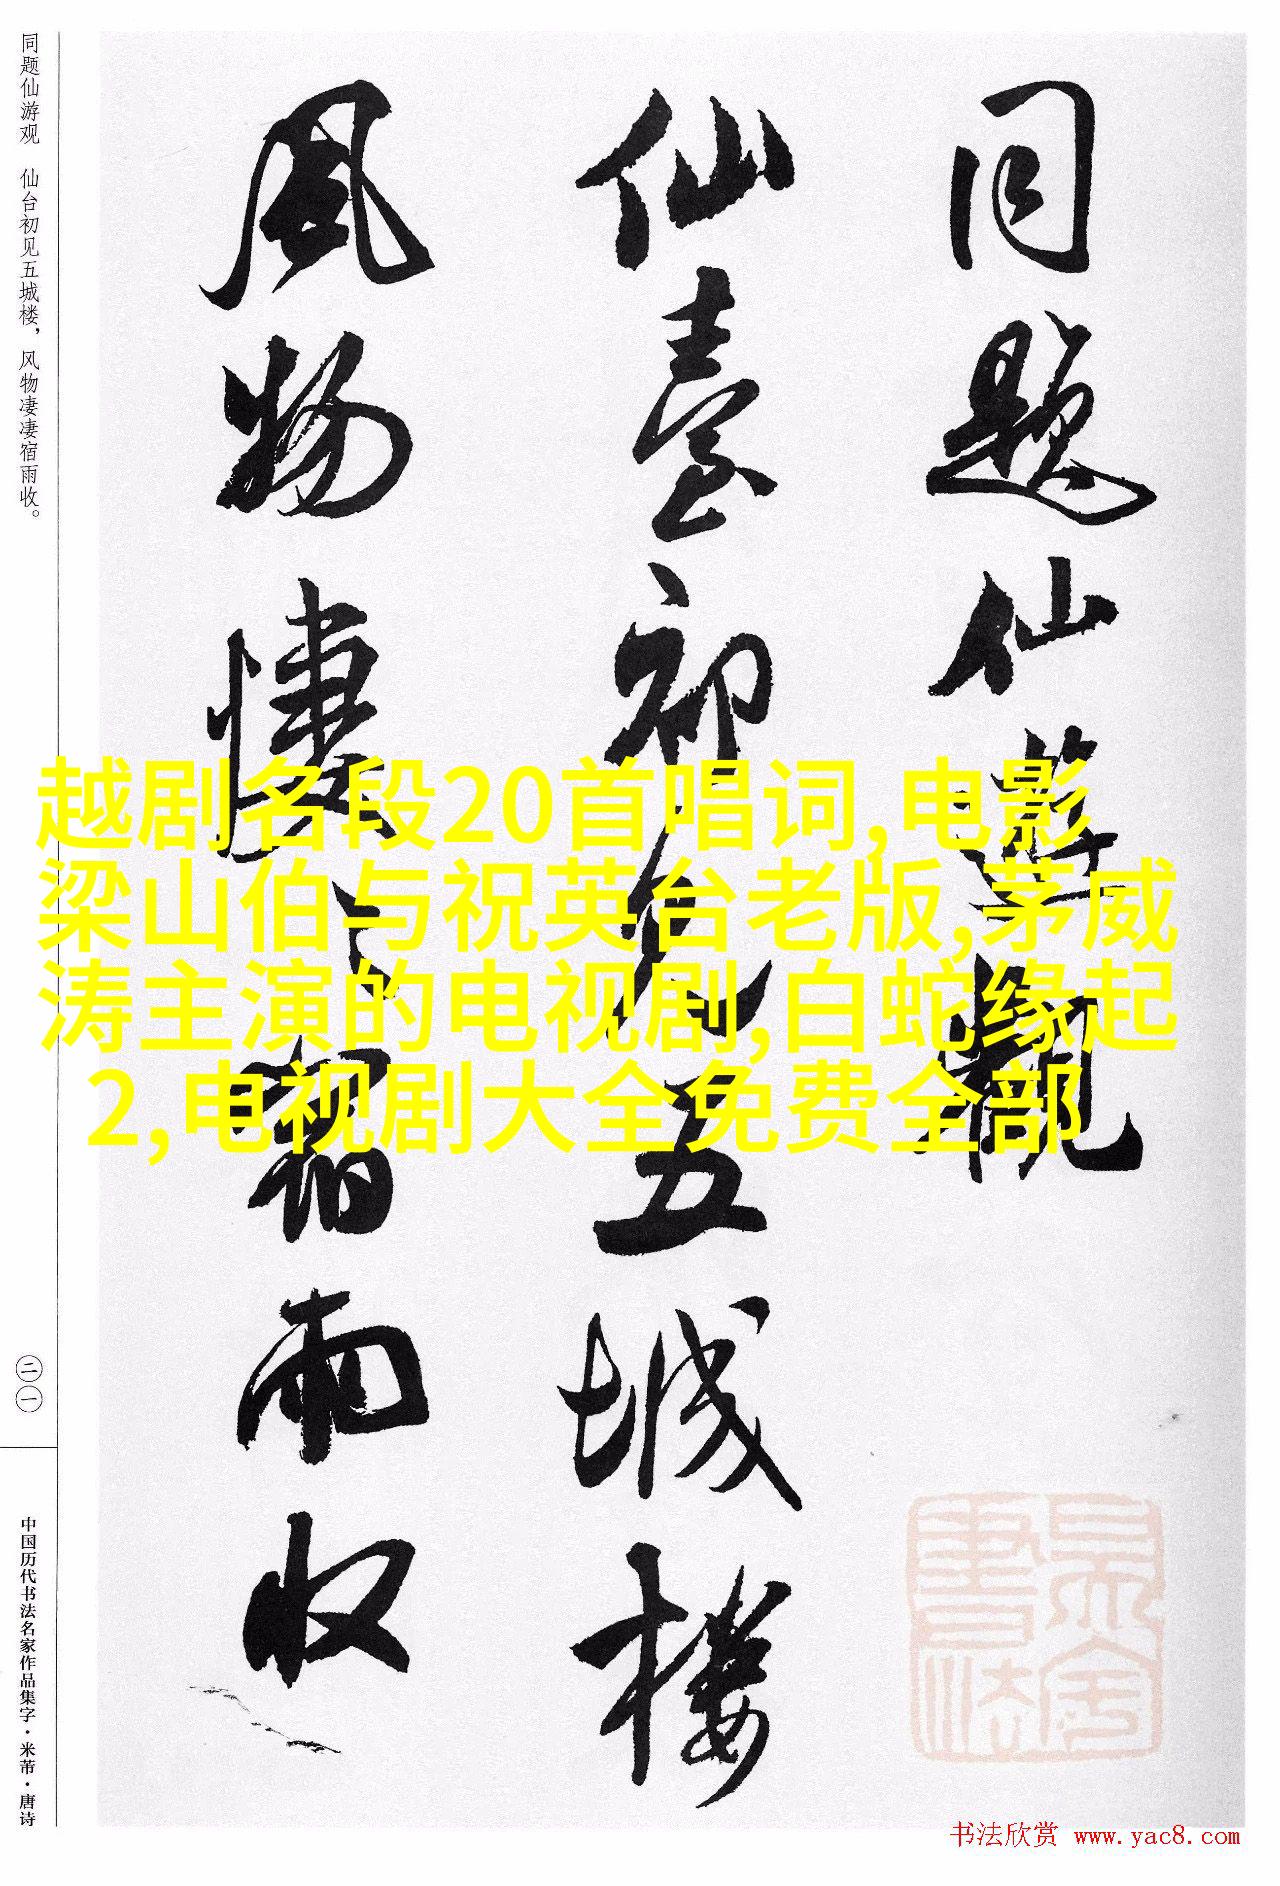 同题仙游观
仙臺初见五城楼
風物悽〻宿雨收
越剧名段20首唱词,电影
梁山伯与祝英台老版,茅威
涛主演的电视剧,白蛇缘起
2,电视剧大全免费全部
同题仙游观 仙台初见五城楼，风物凄凄宿雨收。
二一
中国历代书法名家作品集字·米芾·唐诗
书法欣赏 www.yac8.com